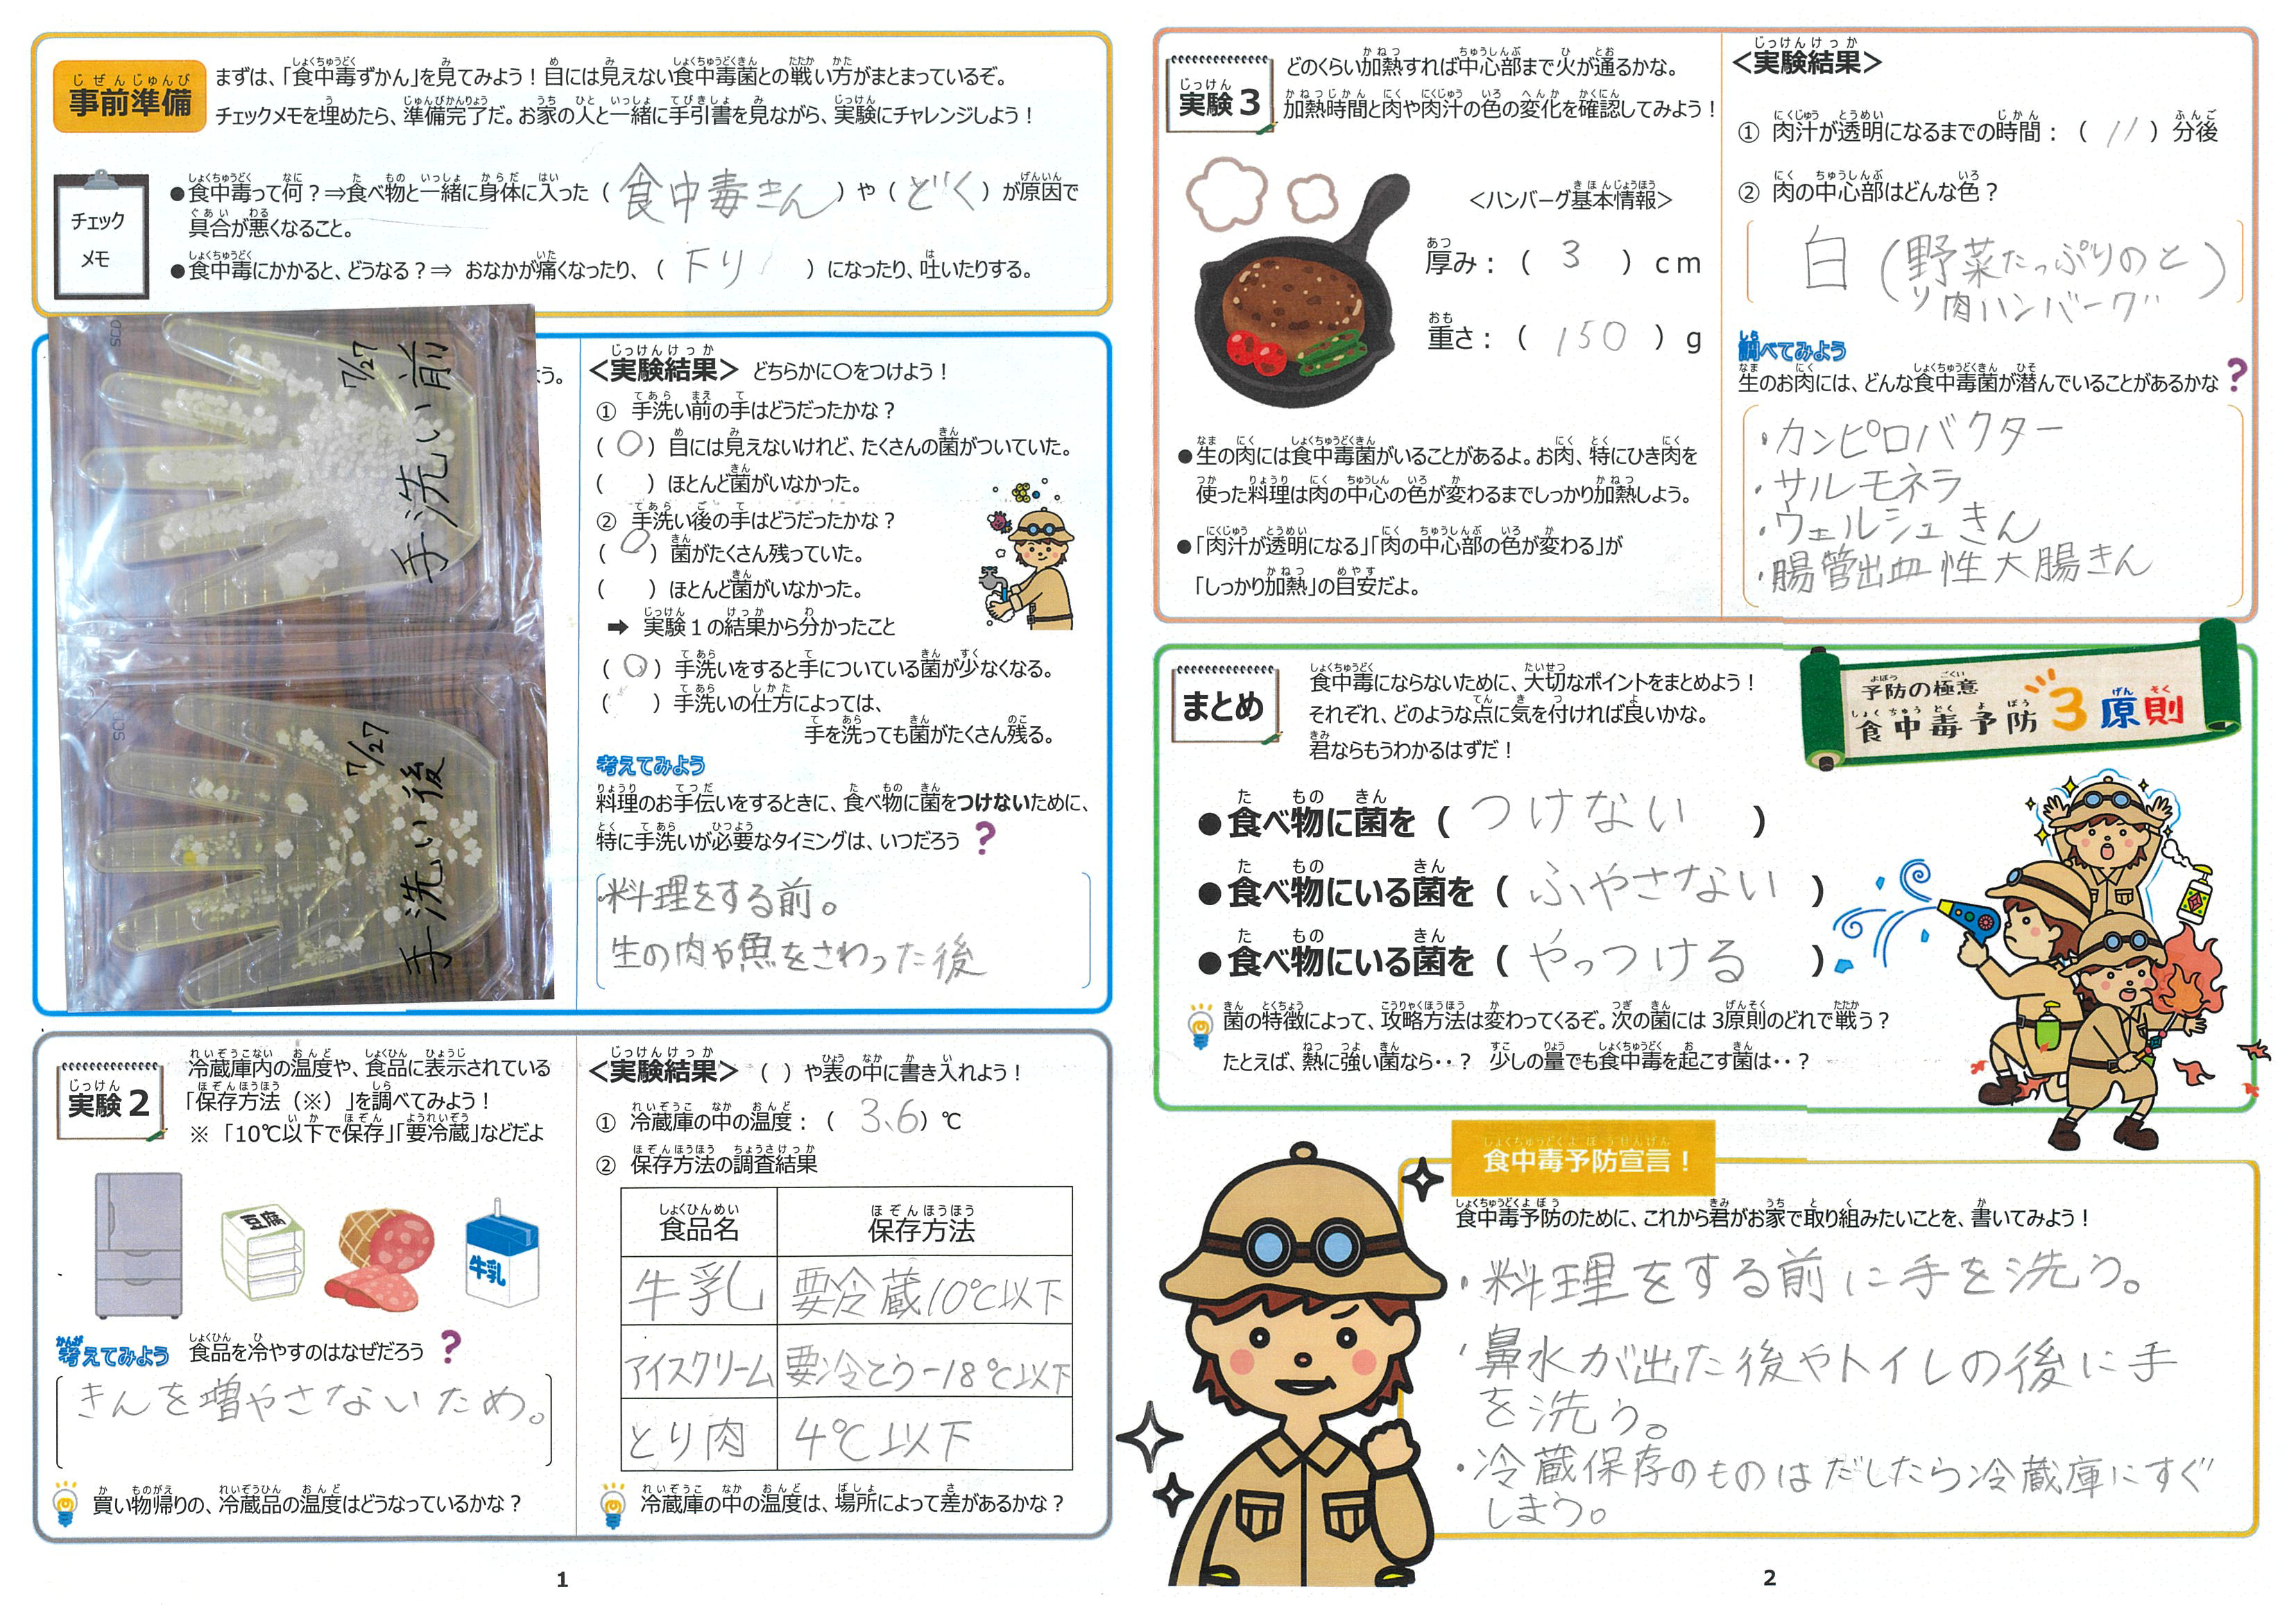 事前準備
まずは、「食中毒ずかん」を見てみよう！目には見えない食中毒菌との戦い方がまとまっているぞ。
チェックメモを埋めたら、準備完了だ。お家の人と一緒に手引書を見ながら、実験にチャレンジしよう！
チェック
メモ
●食中毒って何？⇒食べ物と一緒に身体に入った（食中毒きん）や（どく）が原因で
具合が悪くなること。
●食中毒にかかると、どうなる？⇒ おなかが痛くなったり、（下り）になったり、吐いたりする。
7/27
手洗い前
7/27
手洗い後
う。
＜実験結果＞ どちらかに○をつけよう！
① 手洗い前の手はどうだったかな？
（○）目には見えないけれど、たくさんの菌がついていた。
（ ）ほとんど菌がいなかった。
② 手洗い後の手はどうだったかな？
（○）菌がたくさん残っていた。
（ ）ほとんど菌がいなかった。
➡ 実験１の結果から分かったこと
（○）手洗いをすると手についている菌が少なくなる。
（ ）手洗いの仕方によっては、
手を洗っても菌がたくさん残る。
考えてみよう
料理のお手伝いをするときに、食べ物に菌をつけないために、
特に手洗いが必要なタイミングは、いつだろう？
料理をする前。
生の肉や魚をさわった後
実験２
冷蔵庫内の温度や、食品に表示されている
「保存方法（※）」を調べてみよう！
※「10℃以下で保存」「要冷蔵」などだよ
豆腐
牛乳
考えてみよう 食品を冷やすのはなぜだろう？
きんを増やさないため。
買い物帰りの、冷蔵品の温度はどうなっているかな？
＜実験結果＞ （ ）や表の中に書き入れよう！
① 冷蔵庫の中の温度：（3、6）℃
② 保存方法の調査結果
食品名 保存方法
牛乳 要冷蔵10℃以下
アイスクリーム 要冷とう-18℃以下
とり肉 4℃以下
冷蔵庫の中の温度は、場所によって差があるかな？
1
実験３
どのくらい加熱すれば中心部まで火が通るかな。
加熱時間と肉や肉汁の色の変化を確認してみよう！
＜ハンバーグ基本情報＞
厚み：（3）cm
重さ：（150）g
●生の肉には食中毒菌がいることがあるよ。お肉、特にひき肉を
使った料理は肉の中心の色が変わるまでしっかり加熱しよう。
●「肉汁が透明になる」「肉の中心部の色が変わる」が
「しっかり加熱」の目安だよ。
＜実験結果＞
① 肉汁が透明になるまでの時間：（11）分後
② 肉の中心部はどんな色？
白（野菜たっぷりのと
り肉ハンバーグ）
調べてみよう
生のお肉には、どんな食中毒菌が潜んでいることがあるかな？
・カンピロバクター
・サルモネラ
・ウェルシュきん
・腸管出血性大腸きん
まとめ
食中毒にならないために、大切なポイントをまとめよう！
それぞれ、どのような点に気を付ければ良いかな。
君ならもうわかるはずだ！
予防の極意
食中毒予防３原則
●食べ物に菌を（つけない）
●食べ物にいる菌を（ふやさない）
●食べ物にいる菌を（やっつける）
菌の特徴によって、攻略方法は変わってくるぞ。次の菌には３原則のどれで戦う？
たとえば、熱に強い菌なら‥？ 少しの量でも食中毒を起こす菌は‥？
食中毒予防宣言！
食中毒予防のために、これから君がお家で取り組みたいことを、書いてみよう！
・料理をする前に手を洗う。
・鼻水が出た後やトイレの後に手
を洗う。
・冷蔵保存のものはだしたら冷蔵庫にすぐ
しまう。
2